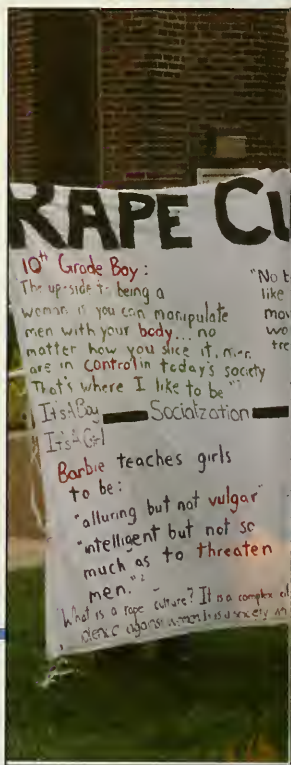 RAPE CU
10th Grade Boy:
The up-side to being a
woman is you can manipulate
men with your body... no
matter how you slice it, men
are in control in today's society
That's where I like to be"
"No b
like
mov
wo
tre
It's A Boy
Socialization
It's A Girl
Barbie teaches girls
to be:
"alluring but not vulgar"
"intelligent but not so
much as to threaten
men."
What is a rape culture? It is a complex of
violence against women. It is a society wh